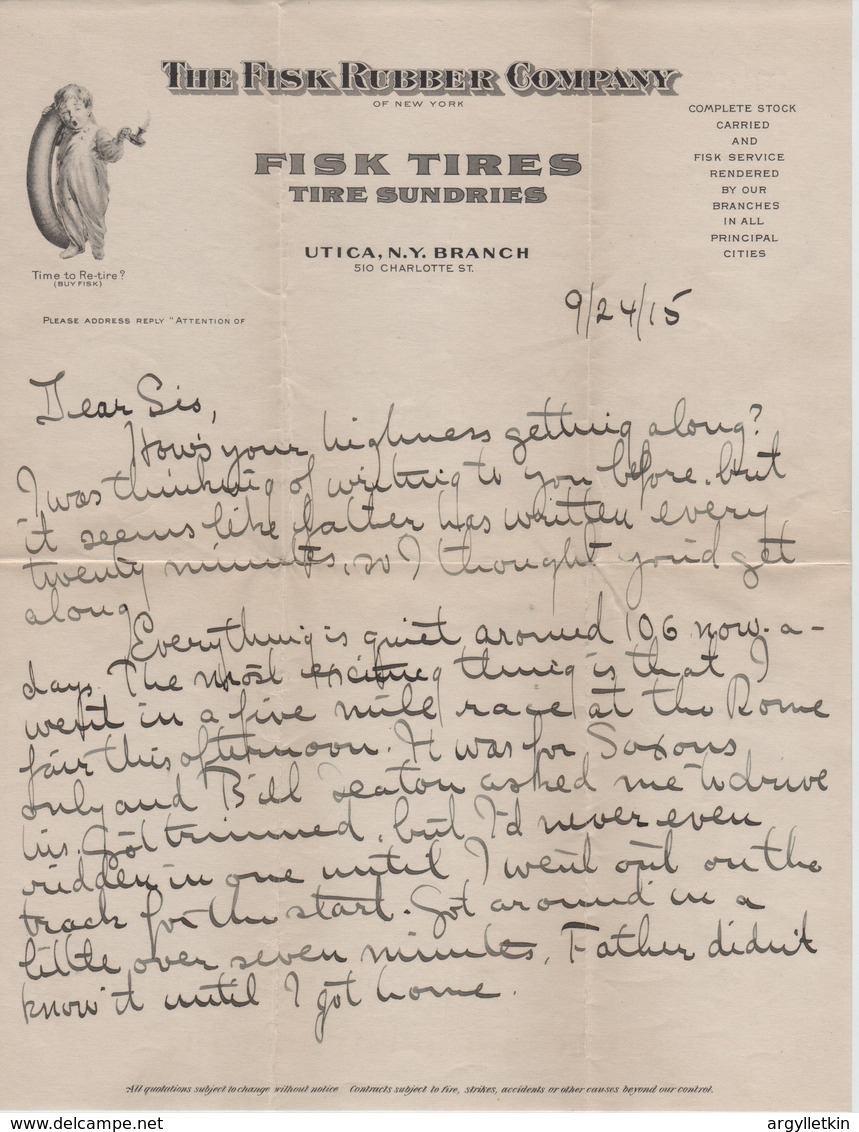 THE FISK RUBBER COMPANY
OF NEW YORK
FISK TIRES
TIRE SUNDRIES
UTICA, N.Y. BRANCH
510 CHARLOTTE ST.
COMPLETE STOCK
CARRIED
AND
FISK SERVICE
RENDERED
BY OUR
BRANCHES
IN ALL
PRINCIPAL
CITIES
Time to Re-tire?
(BUY FISK)
PLEASE ADDRESS REPLY "ATTENTION OF
9/24/15
Dear Sis,
How's your highness getting along?
I was thinking of writing to you before, but
it seems like father has written every
twenty minutes, so I thought you'd get
along.
Everything is quiet around 106 now-a-
days. The most exciting thing is that I
went in a five mile race at the Rome
fair this afternoon. It was for Saxons
only and Bill Seaton asked me to drive
his. Got trimmed, but I'd never even
ridden in one until I went out on the
track for the start. Got around in a
little over seven minutes. Father didn't
know it until I got home.
All quotations subject to change without notice Contracts subject to fire, strikes, accidents or other causes beyond our control.
argylletkin